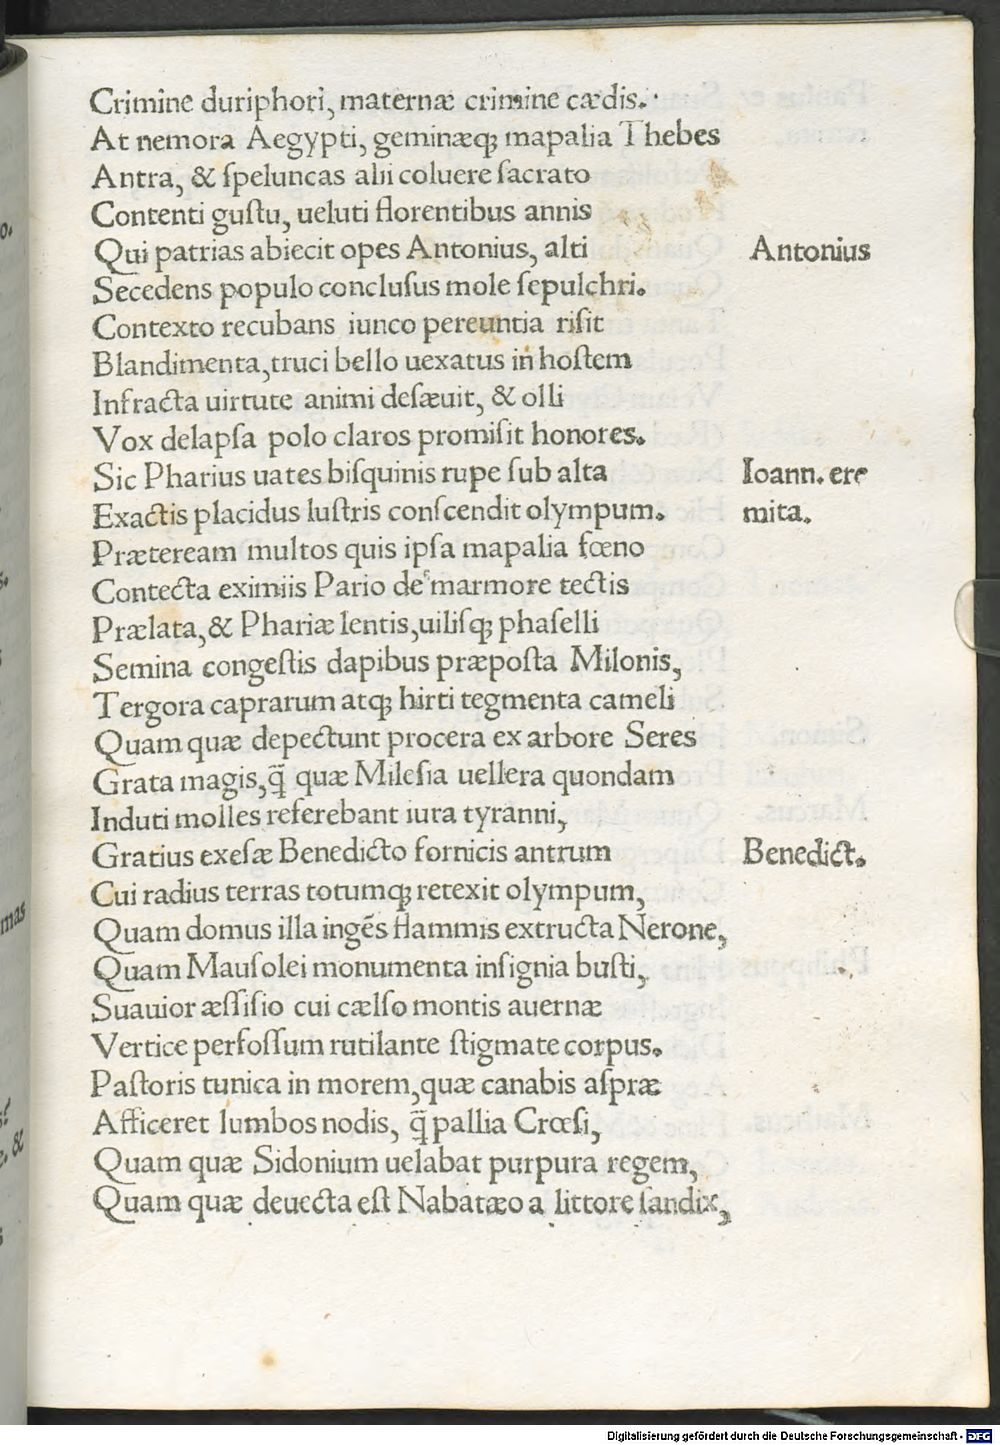 Crimine duriphori, maternæ crimine cædis.
At nemora Aegypti, geminæqꝫ mapalia Thebes
Antra, & ſpeluncas alii coluere ſacrato
Contenti guſtu, ueluti florentibus annis
Qui patrias abiecit opes Antonius, alti Antonius
Secedens populo concluſus mole ſepulchri.
Contexto recubans iunco pereuntia riſit
Blandimenta, truci bello uexatus in hoſtem
Infracta uirtute animi deſæuit, & olli
Vox delapſa polo claros promiſit honores.
Sic Pharius uates biſquinis rupe ſub alta Ioann. ere
Exactis placidus luſtris conſcendit olympum. mita.
Præteream multos quis ipſa mapalia fœno
Contecta eximiis Pario de marmore tectis
Prælata, & Phariæ lentis, uiliſqꝫ phaſelli
Semina congeſtis dapibus præpoſta Milonis,
Tergora caprarum atqꝫ hirti tegmenta cameli
Quam quæ depectunt procera ex arbore Seres
Grata magis, q̄ quæ Mileſia uellera quondam
Induti molles referebant iura tyranni,
Gratius exeſæ Benedicto fornicis antrum Benedict.
Cui radius terras totumqꝫ retexit olympum,
Quam domus illa ingēs flammis extructa Nerone,
Quam Mauſolei monumenta inſignia buſti,
Suauior æſſiſio cui cælſo montis auernæ
Vertice perfoſſum rutilante ſtigmate corpus.
Paſtoris tunica in morem, quæ canabis aſpræ
Afficeret lumbos nodis, q̄ pallia Crœſi,
Quam quæ Sidonium uelabat purpura regem,
Quam quæ deuecta eſt Nabatæo a littore ſandix,
Digitalisierung gefördert durch die Deutsche Forschungsgemeinschaft - DFG